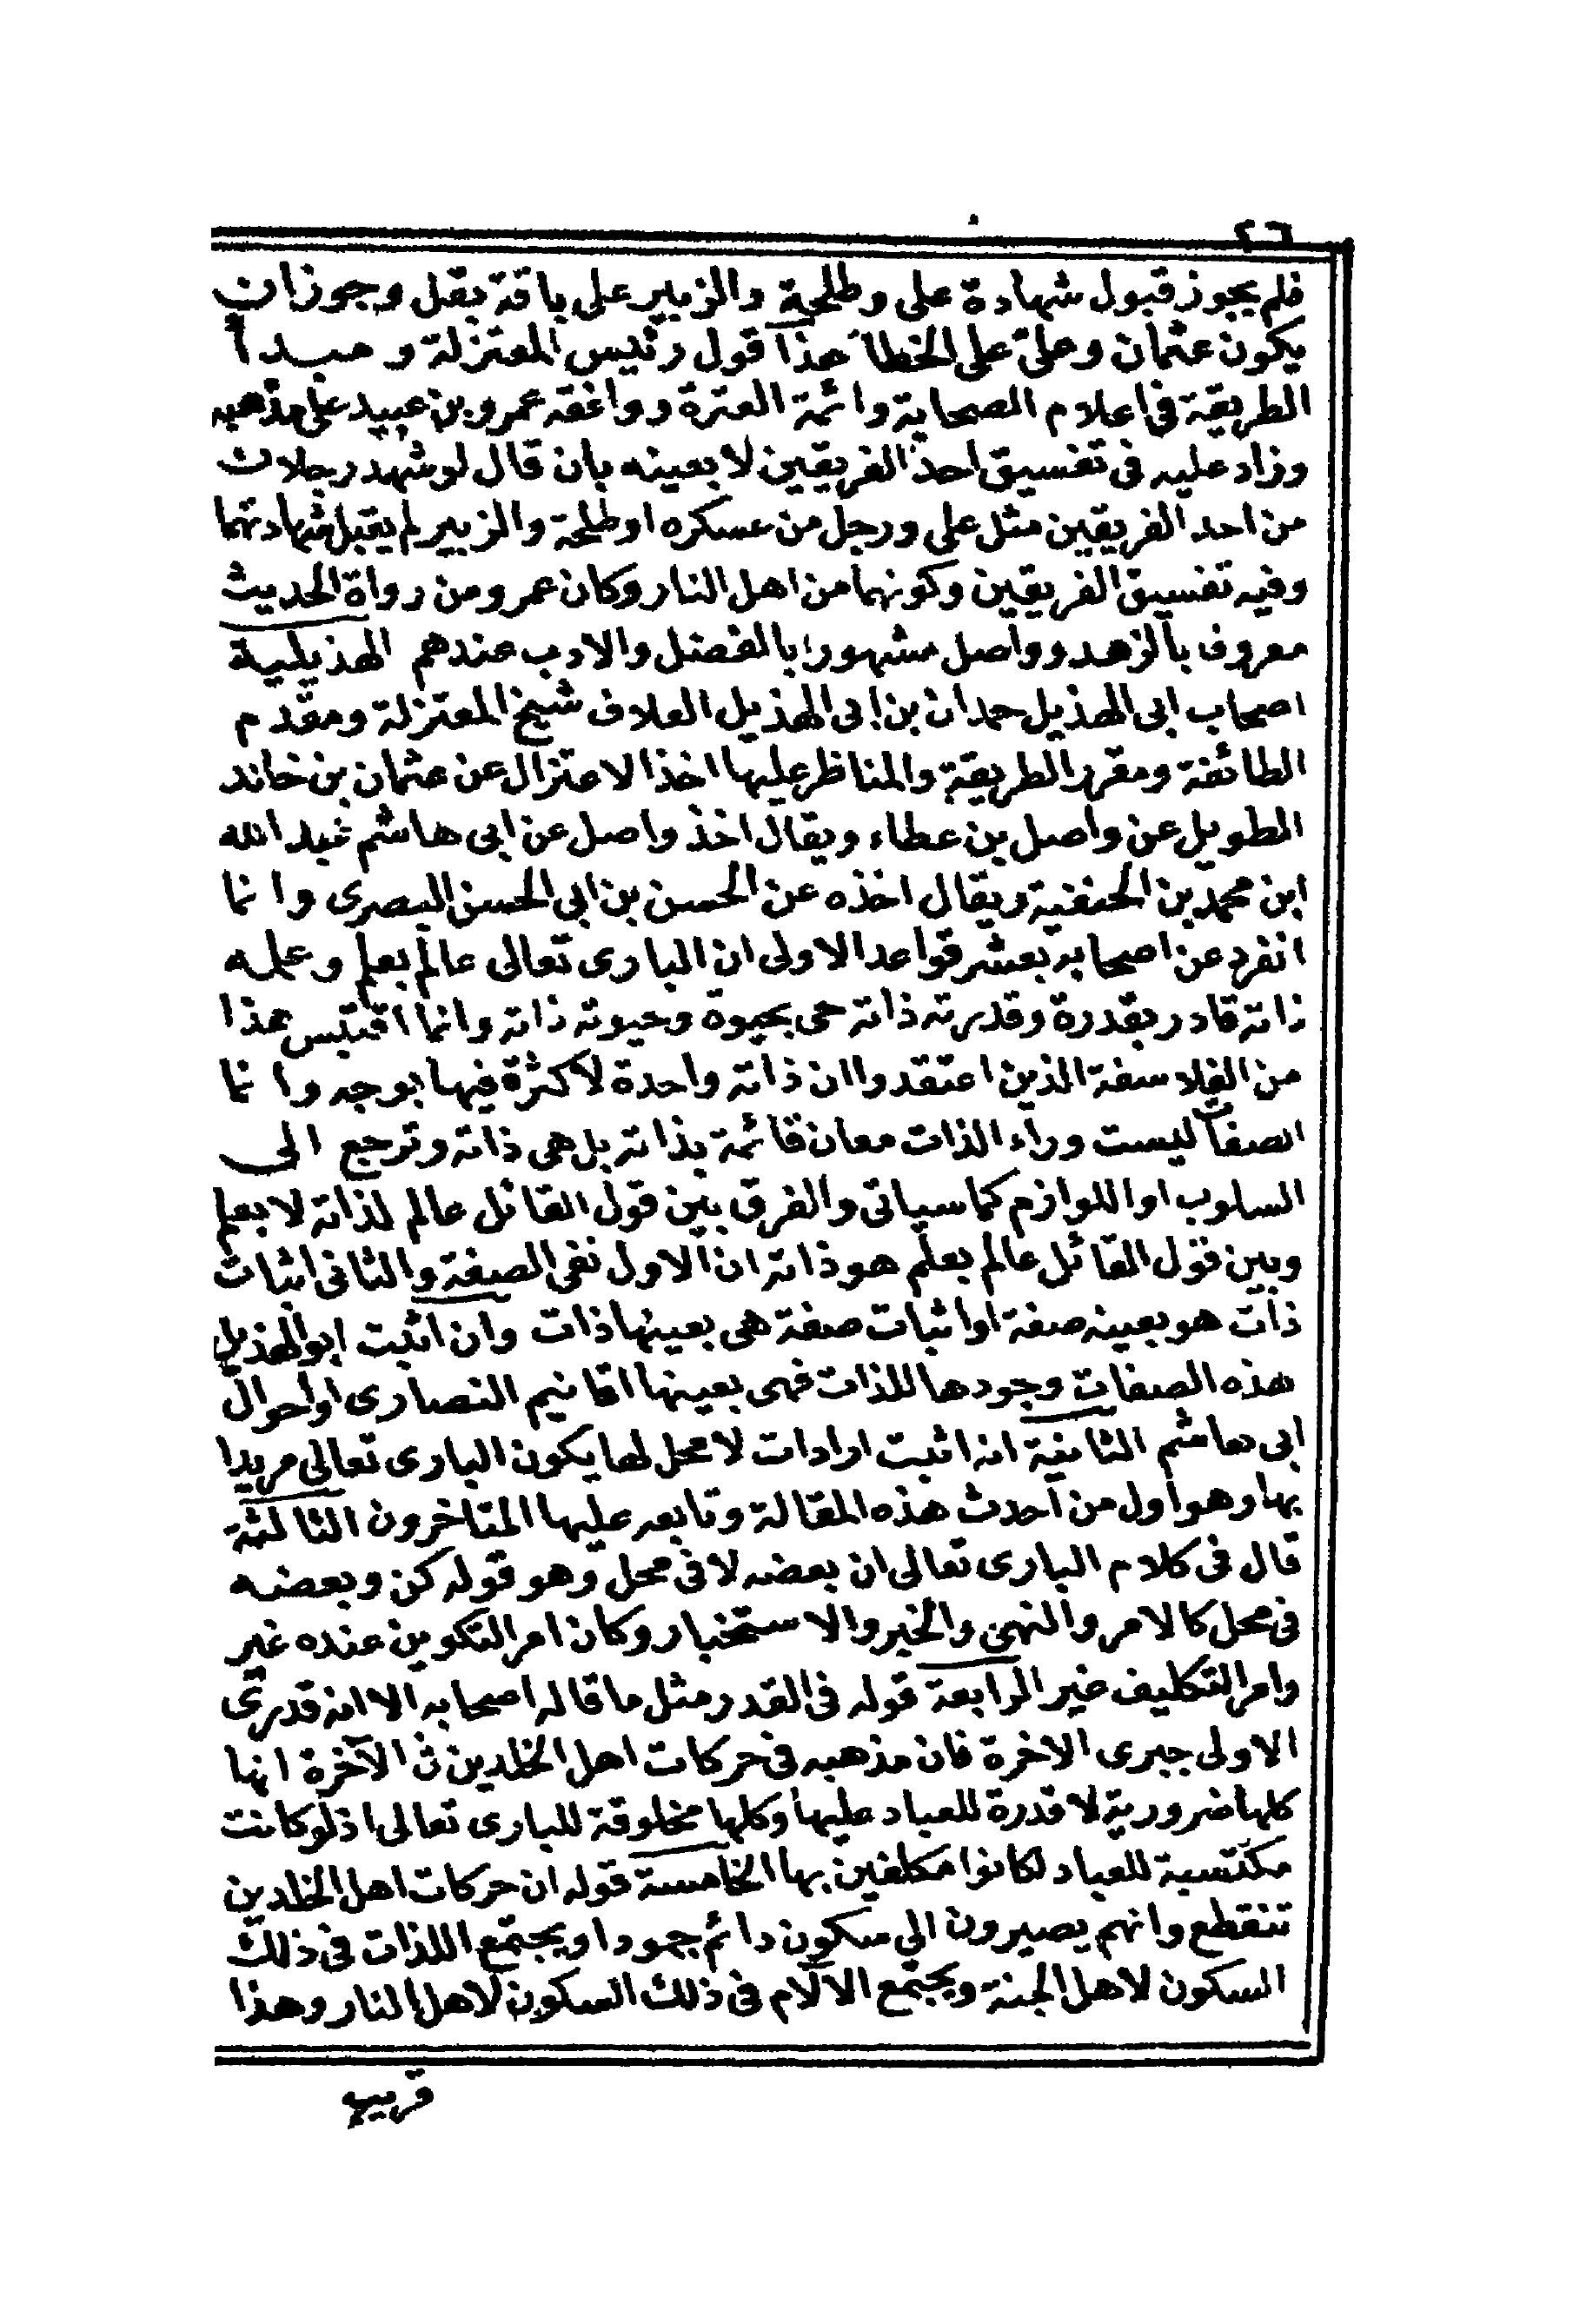 ٢٦
فلم يجوز قبول شهادة على وطلحة والزبير على باقة بقل وجوزان
يكون عثمان وعلى على الخطأ هذا قول رئيس المعتزلة ومبدأ
الطريقة فى اعلام الصحابة وائمة العترة ووافقه عمرو بن عبيد على مذهبه
وزاد عليه فى تفسيق احد الفريقين لا بعينه بان قال لو شهد رجلان
من احد الفريقين مثل على ورجل من عسكره او طلحة والزبير لم يقبل شهادتهما
وفيه تفسيق الفريقين وكونهما من اهل النار وكان عمرو من رواة الحديث
معروف بالزهد وواصل مشهورا بالفضل والادب عندهم الهذيلية
اصحاب ابى الهذيل حمدان بن ابى الهذيل العلاف شيخ المعتزلة ومقدم
الطائفة ومقرر الطريقة والمناظر عليها اخذ الاعتزال عن عثمان بن خالد
الطويل عن واصل بن عطاء ويقال اخذ واصل عن ابى هاشم عبد الله
ابن محمد بن الحنفية ويقال اخذه عن الحسن بن ابى الحسن البصرى وانما
انفرد عن اصحابه بعشر قواعد الاولى ان البارى تعالى عالم بعلم وعلمه
ذاته قادر بقدرة وقدرته ذاته حى بحيوة وحيوته ذاته وانما اقتبس هذا
من الفلاسفة الذين اعتقدوا ان ذاته واحدة لا كثرة فيها بوجه وانما
الصفات ليست وراء الذات معان قائمة بذاته بل هى ذاته وترجع الى
السلوب او اللوازم كما سياتى والفرق بين قول القائل عالم لذاته لا بعلم
وبين قول القائل عالم بعلم هو ذاته ان الاول نفى الصفة والثانى اثبات
ذات هو بعينه صفة او اثبات صفة هى بعينها ذات وان اثبت ابو الهذيل
هذه الصفات وجودها للذات فهى بعينها اقانيم النصارى او احوال
ابى هاشم الثانية انه اثبت ارادات لا محل لها يكون البارى تعالى مريدا
بها وهو اول من احدث هذه المقالة وتابعه عليها المتاخرون الثالثة
قال فى كلام البارى تعالى ان بعضه لا فى محل وهو قوله كن وبعضه
فى محل كالامر والنهى والخبر والاستخبار وكان امر التكوين عنده غير
وامر التكليف غير الرابعة قوله فى القدر مثل ما قاله اصحابه الا انه قدرى
الاولى جبرى الاخرة فان مذهبه فى حركات اهل الخلدين فى الآخرة انها
كلها ضرورية لا قدرة للعباد عليها وكلها مخلوقة للبارى تعالى اذ لو كانت
مكتسبة للعباد لكانوا مكلفين بها الخامسة قوله ان حركات اهل الخلدين
تنقطع وانهم يصيرون الى سكون دائم جمودا ويجتمع اللذات فى ذلك
السكون لاهل الجنة ويجتمع الآلام فى ذلك السكون لاهل النار وهذا
قريب